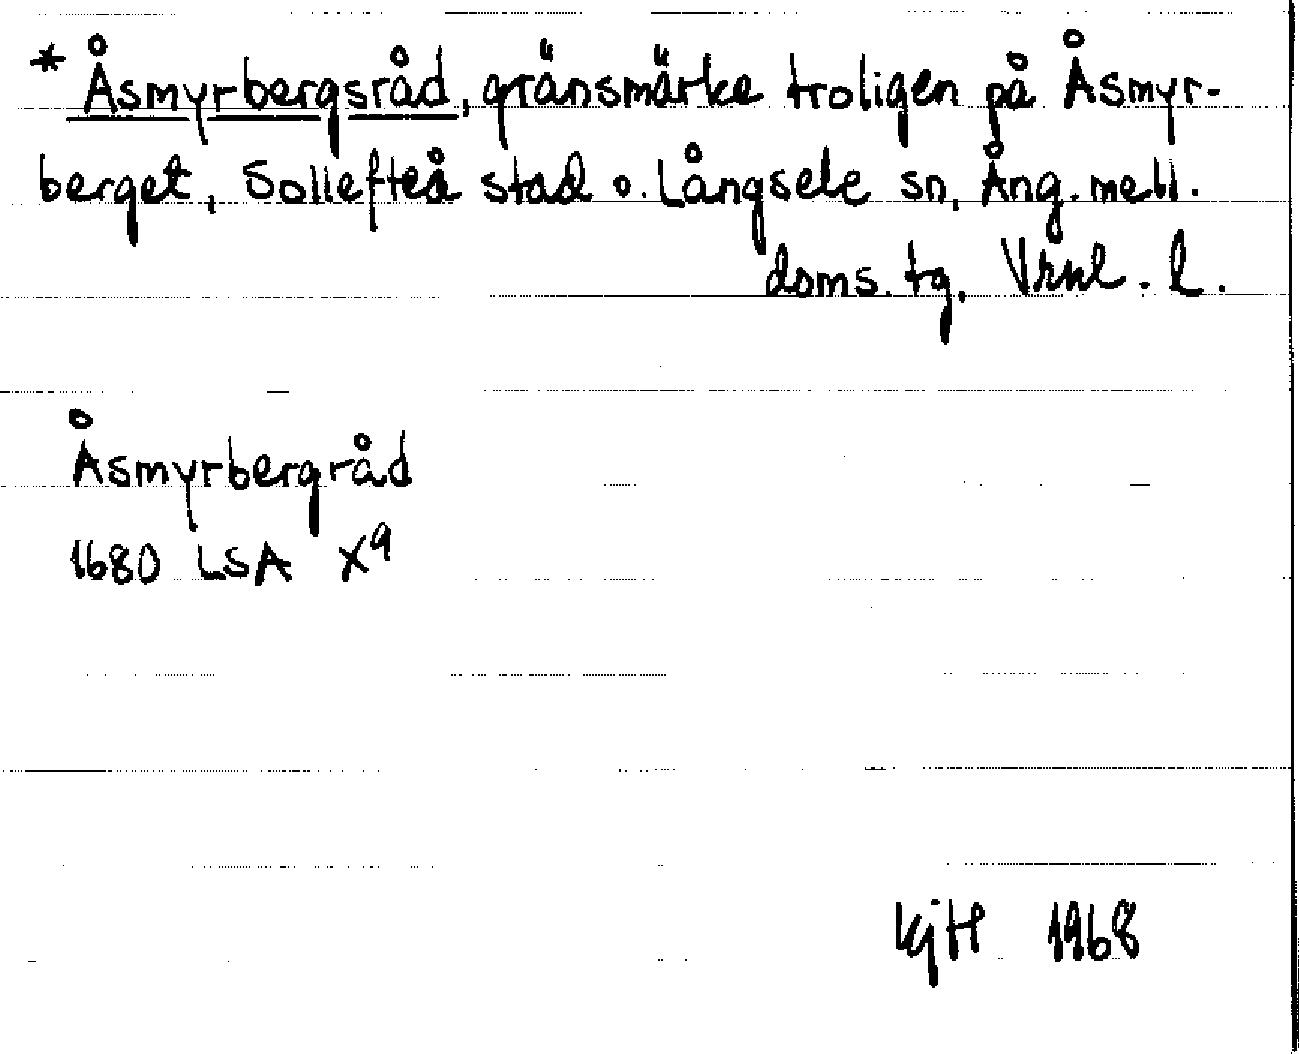 * Åsmyrbergsråd, gränsmärke troligen på Åsmyr-
berget, Sollefteå stad o. Långsele sn, Ång. mell.
doms. tg, Vrnl. l.
Åsmyrbergråd
1680 LSA X9
KjH 1968